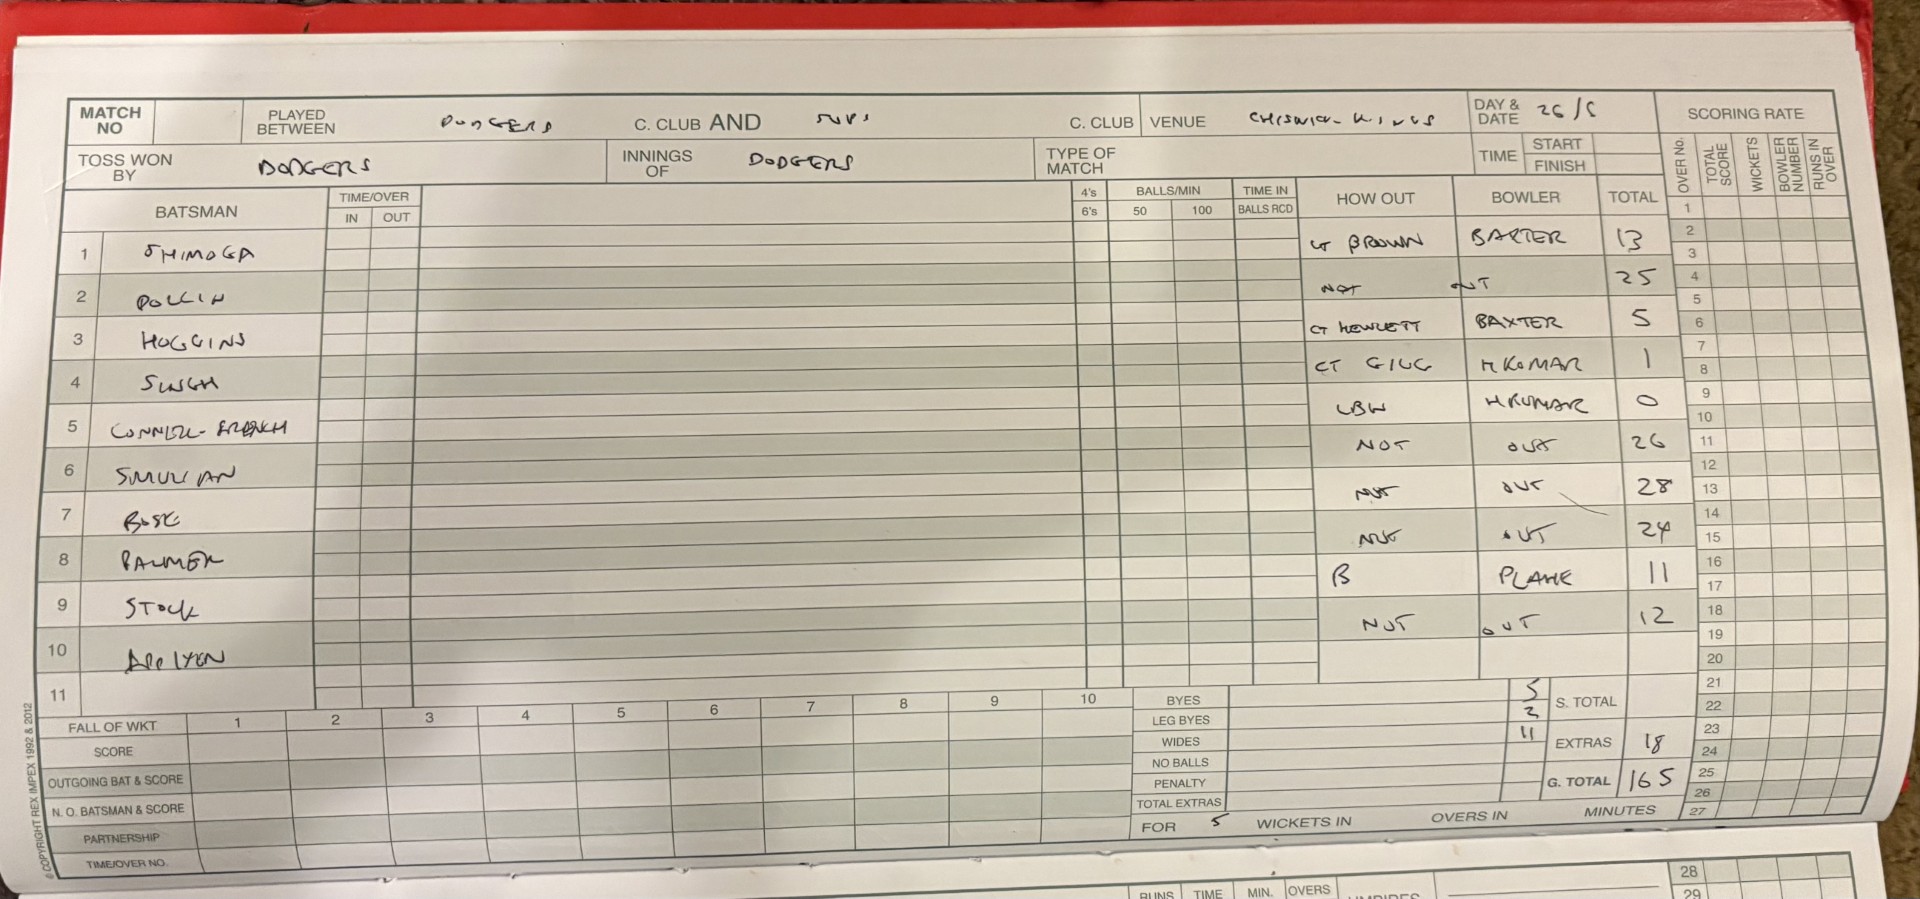 MATCH NO PLAYED BETWEEN DODGERS C. CLUB AND C. CLUB VENUE CHISWICK DAY & DATE 26/5 SCORING RATE
TOSS WON BY DODGERS INNINGS OF DODGERS TYPE OF MATCH TIME START FINISH
OVER No. TOTAL SCORE WICKETS BOWLER NUMBER RUNS IN OVER
BATSMAN TIME/OVER IN OUT 4's 6's BALLS/MIN 50 100 TIME IN BALLS RCD HOW OUT BOWLER TOTAL
1 SHIMOGA CT BROWN BAXTER 13
2 POLLIN NOT OUT 25
3 HUGGINS CT HEWLETT BAXTER 5
4 SINGH CT GILG H KUMAR 1
5 CONNELL-FRENCH LBW H KUMAR 0
6 SMULIAN NOT OUT 26
7 BOSE NOT OUT 28
8 PALMER NOT OUT 24
9 STOCK B 11
10 NOT OUT 12
11
FALL OF WKT 1 2 3 4 5 6 7 8 9 10
SCORE
OUTGOING BAT & SCORE
N. O. BATSMAN & SCORE
PARTNERSHIP
TIME/OVER NO.
BYES 5 S. TOTAL
LEG BYES 2
WIDES 11 EXTRAS 18
NO BALLS
PENALTY G. TOTAL 165
TOTAL EXTRAS
FOR 5 WICKETS IN OVERS IN MINUTES
1
2
3
4
5
6
7
8
9
10
11
12
13
14
15
16
17
18
19
20
21
22
23
24
25
26
27
28
29
© COPYRIGHT REX IMPEX 1992 & 2012
RUNS TIME MIN. OVERS